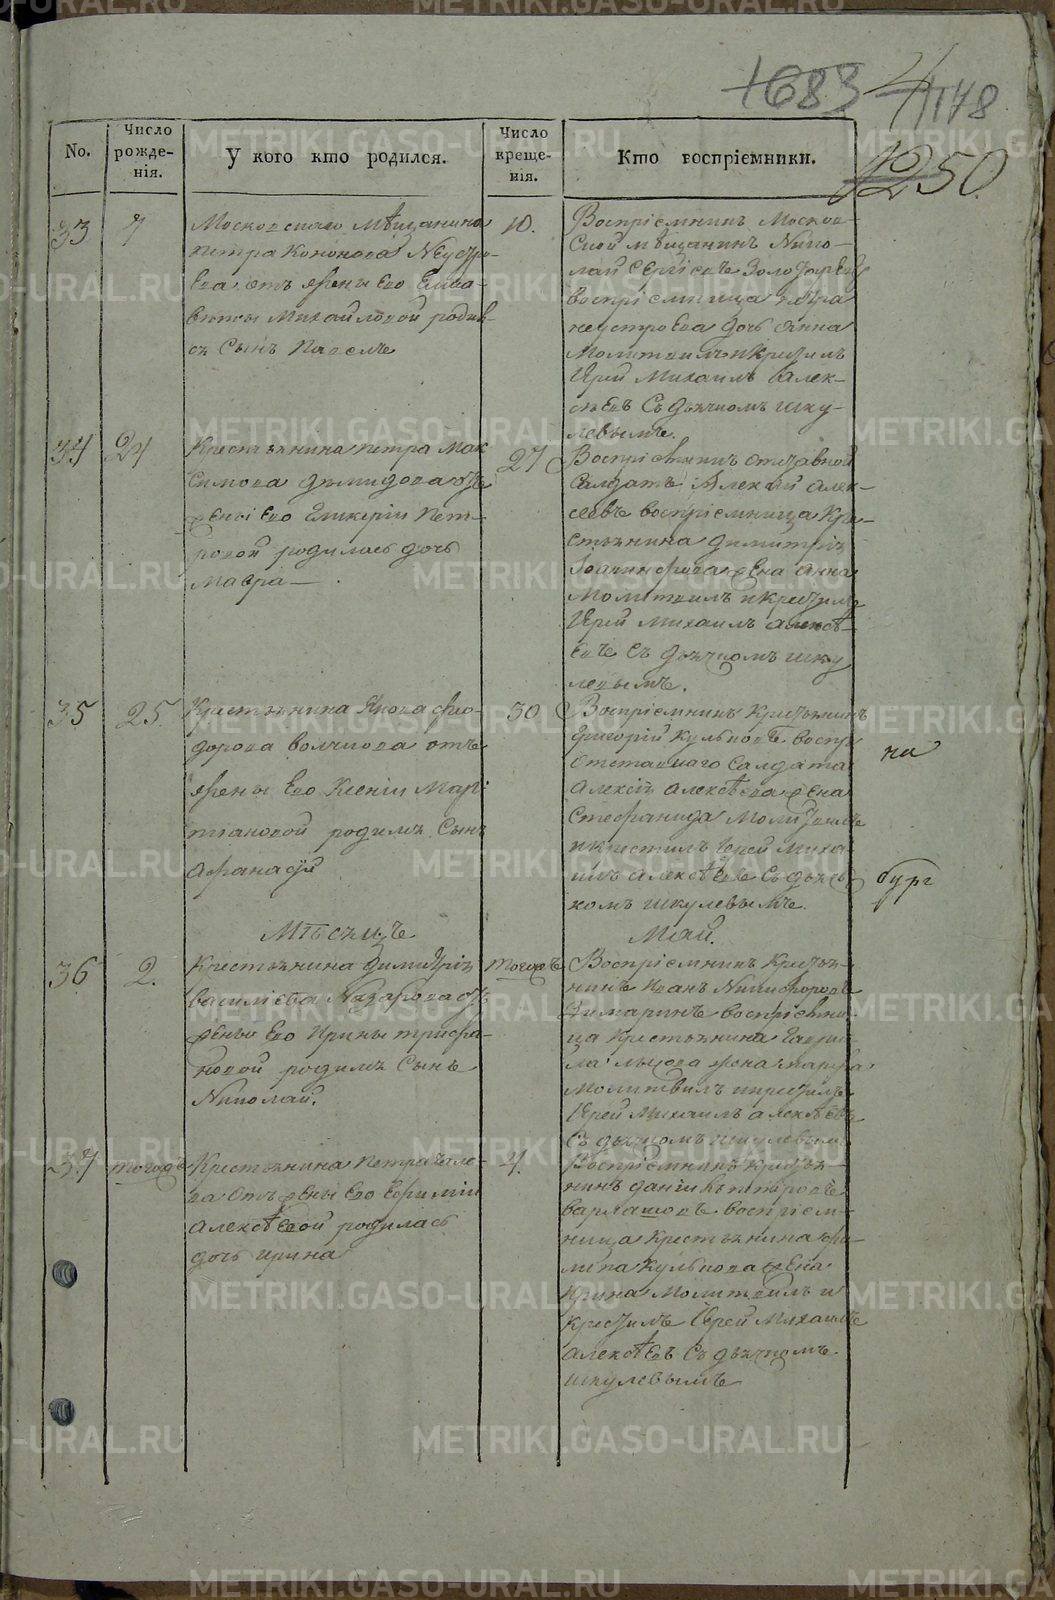 1683 4 1178
1250.
No.
Число рожденія.
У кого кто родился.
Число крещенія.
Кто воспріемники.
33
7
Московскаго мѣщанина
петра Кононова Неустро-
ева, отъ жены Его Елиса-
веты Михайловой родил-
ся Сынъ Павелъ
10.
Воспріемникъ Москов-
ской мѣщанинъ Нико-
лай Сергіевъ Золотарев
воспріемница петра
неустроева дочь Анна
Молитвилъ и крестилъ
Іерей Михаилъ Алек-
сѣевъ Съ дьячкомъ шку-
левымъ.
34
27
Крестьянина петра Мак
симова Демидова отъ
жены Его Гликеріи Пет-
ровой родилась дочь
Мавра
27
Воспріемникъ отставной
Салдатъ Алексѣй Алек-
сеевъ воспріемница Кре-
стьянина Димитрія
жена Анна
Молитвилъ и крестилъ
Іерей Михаилъ Алексѣ-
евъ Съ дьячкомъ шку
левымъ.
35
25
Крестьянина Якова Фео-
дорова волчкова отъ
жены Его Ксеніи Мар-
тіановой родилъ Сынъ
Афанасій
30
Воспріемникъ Крестьянинъ
Григорій Кульковъ воспр:
отставнаго Салдата
Алексѣя Алексѣева жена
Стефанида Молитвилъ
и крестилъ Іерей Миха-
илъ Алексѣевъ Съ дьяч-
комъ шкулевымъ.
на
бург
Мѣсяцъ
Май.
36
2.
Крестьянина Димитрія
василіева Назарова отъ
жены Его Ирины трифа-
новой родилъ Сынъ
Николай.
тогожъ
Воспріемникъ Крестья-
нинъ Иванъ Никифоровъ
воспріемни-
ца Крестьянина Гаври-
ла жена марфа
Молитвилъ и крестилъ
Іерей Михаилъ Алексѣевъ
Съ дьячкомъ шкулевымъ
37
тогожъ
Крестьянина петра
отъ жены Его Ефиміи
Алексѣевой родилась
дочь ирина
7.
Воспріемникъ Крестья-
нинъ данійлъ петровъ
воспріем-
ница Крестьянина фи-
липа Кулькова жена
Ирина Молитвилъ и
крестилъ Іерей Михаилъ
Алексѣевъ Съ дьячкомъ
шкулевымъ
METRIKI.GASO-URAL.RU